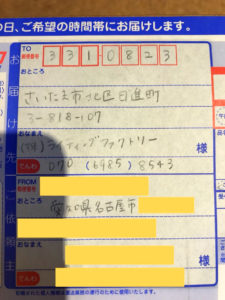 の日、ご希望の時間帯にお届けします。
TO
郵便番号 331-0823
お届け先
おところ
さいたま市北区日進町
3-818-107
おなまえ
(株)ライティングファクトリー
様
でんわ 070 (6985) 8543
FROM
郵便番号
ご依頼主
おところ
愛知県名古屋市
おなまえ
様
でんわ